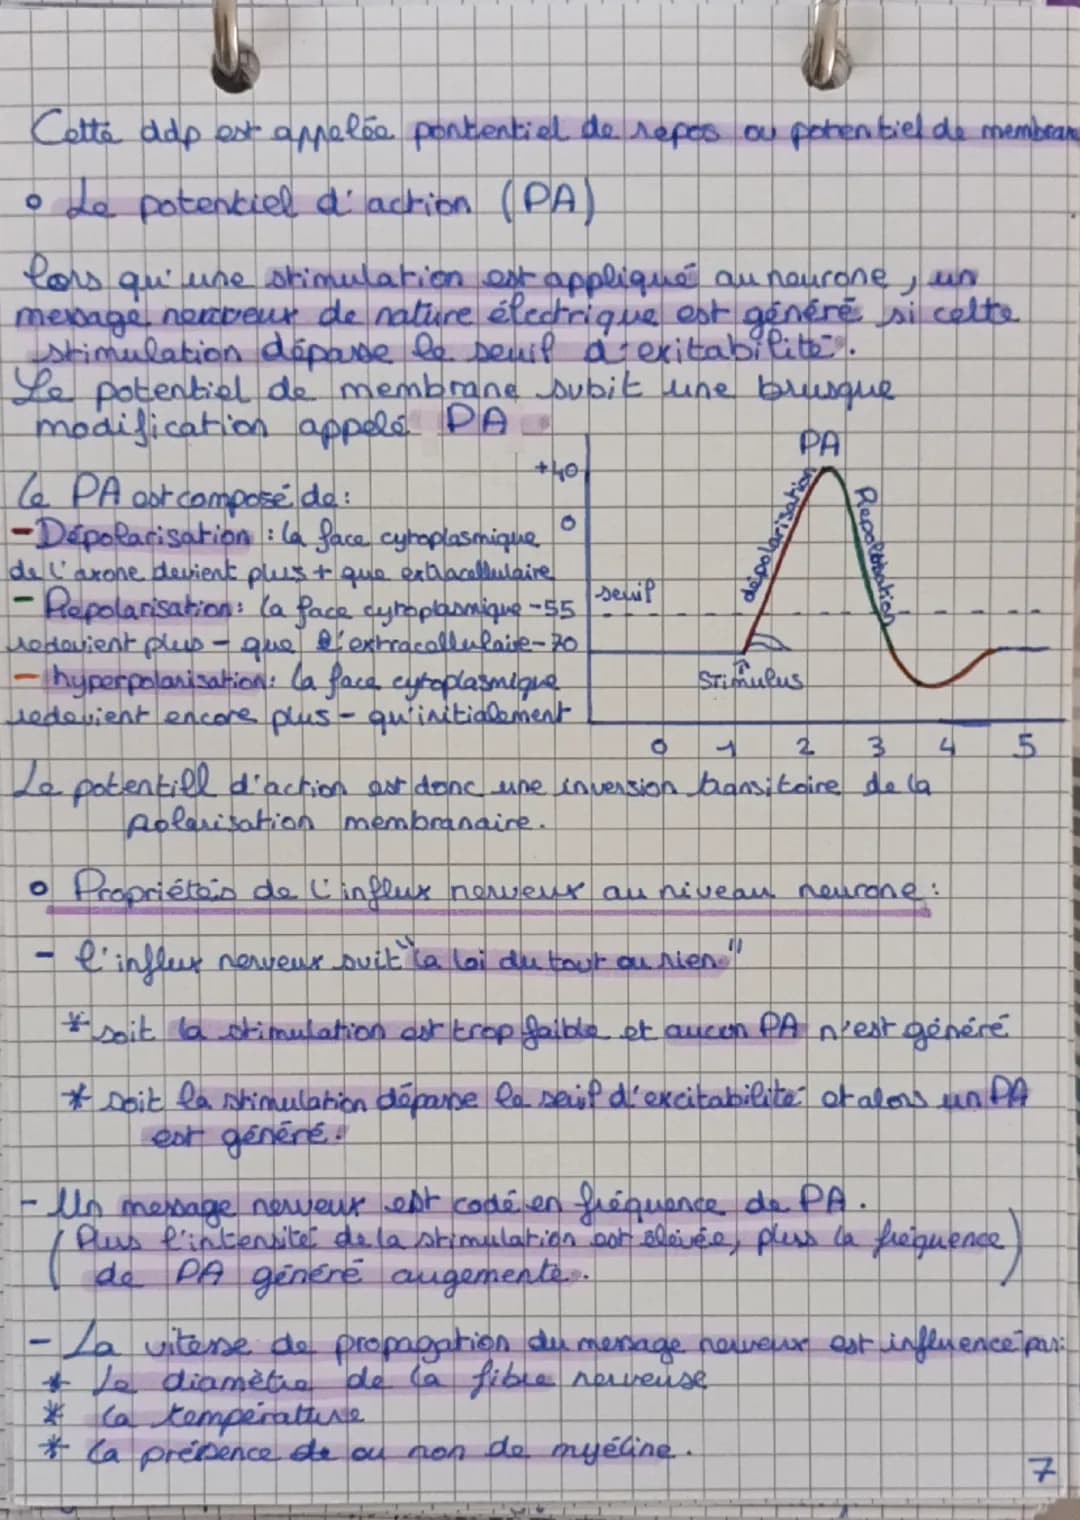 Cette ddp est appelée pontentiel de repos ou potentiel de membran
o Le potentiel d'action (PA)
lors qu'une stimulation est appliqué au neurone, un
message nerveux de nature électrique est généré si cette
stimulation dépasse le seuil d'exitabilité.
Le potentiel de membrane subit une brusque
modification appelé PA
PA
+40
Le PA est composé de :
- Dépolarisation : la face cytoplasmique
0
dépolarisation
Repolarisation
de l'axone devient plus + que extracellulaire
seuil
- Repolarisation : la face cytoplasmique -55
redevient plus - que l'extracellulaire -70
- hyperpolarisation : la face cytoplasmique
Stimulus
redevient encore plus - qu'initialement
0 1 2 3 4 5
Le potentiell d'action est donc une inversion transitoire de la
polarisation membranaire.
o Propriétés de l'influx nerveux au niveau neurone :
- l'influx nerveux suit "la loi du tout ou rien"
* soit la stimulation est trop faible et aucun PA n'est généré
* soit la stimulation dépasse le seuil d'excitabilité et alors un PA
est généré.
- Un message nerveux est codé en fréquence de PA.
( Plus l'intensité de la stimulation est élevée, plus la fréquence
de PA généré augemente. )
- La vitesse de propagation du message nerveux est influencé par :
* Le diamètre de la fibre nerveuse
* la température
* la présence de ou non de myéline.
7